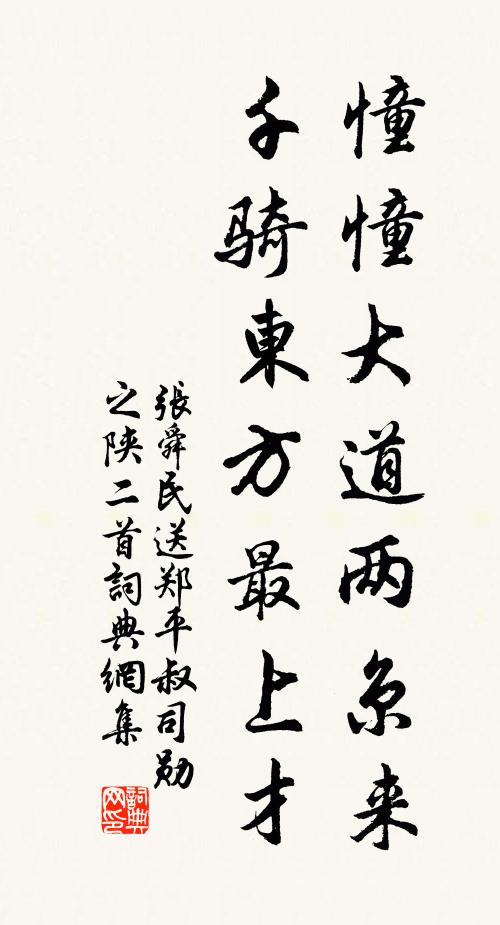 憧憧大道两京来
千骑東方最上才
張舜民送郑平叔司勛
之陝二首詞典網集
詞典
网印